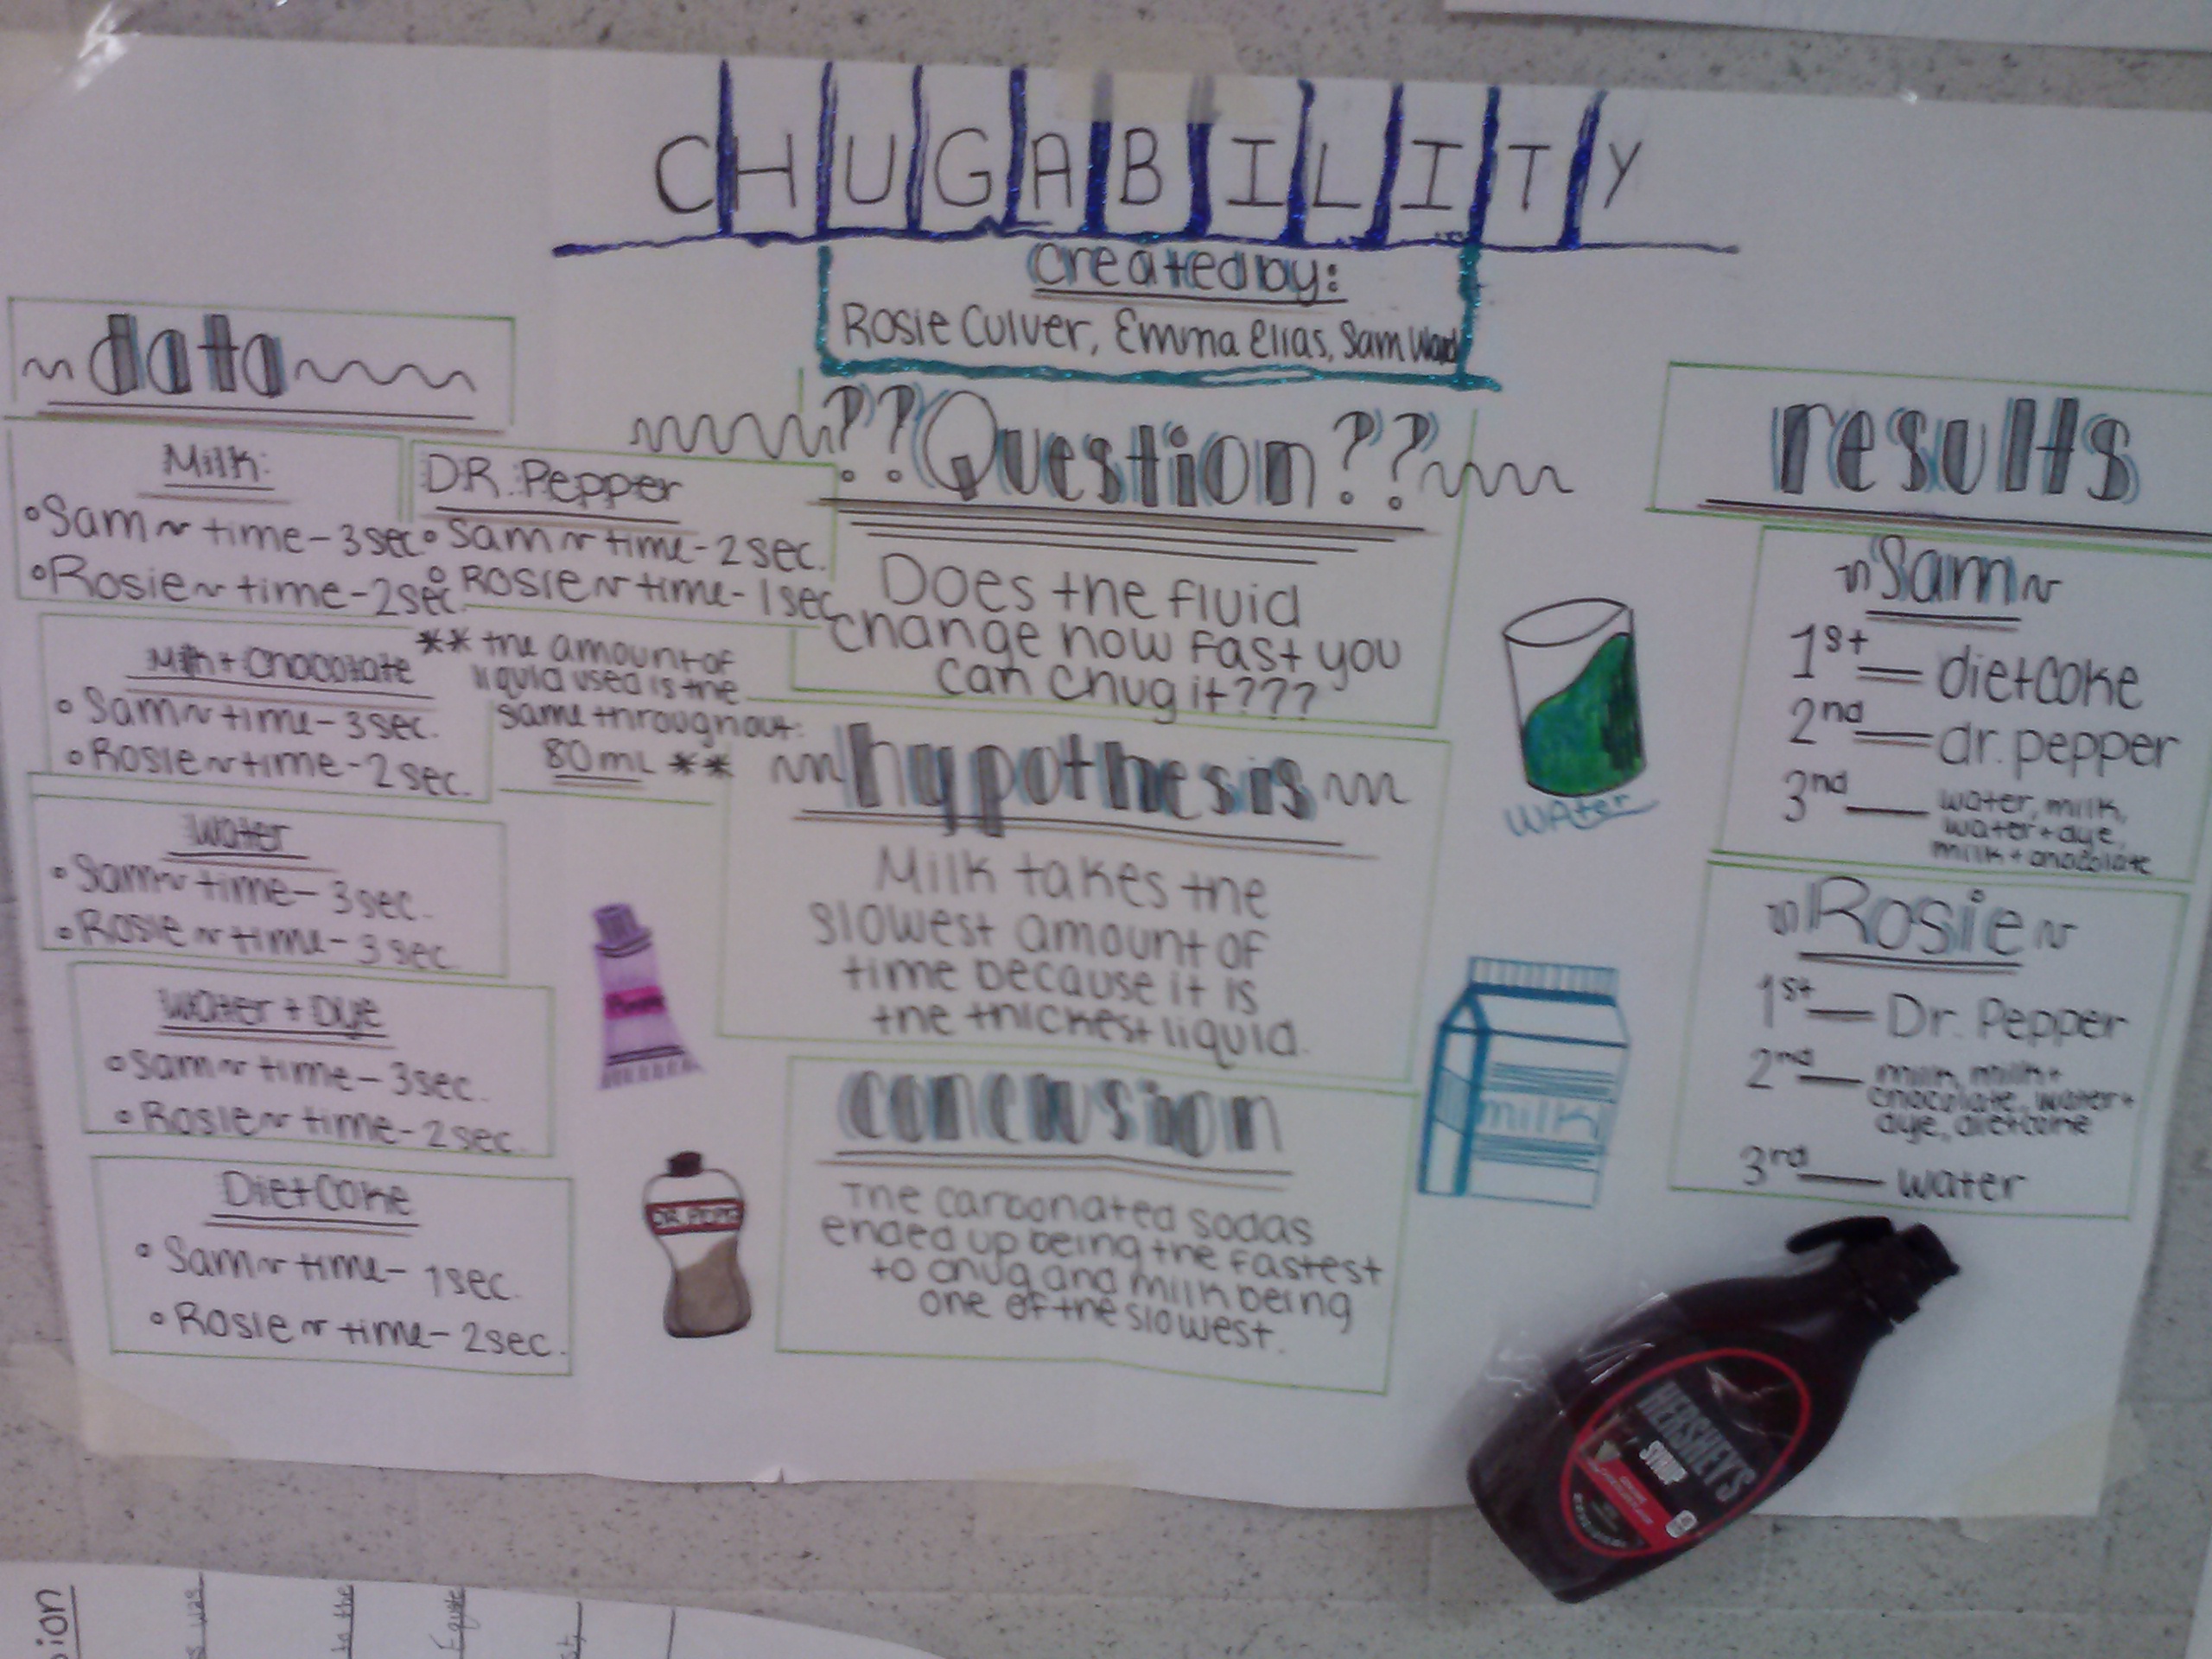 CHUGABILITY
created by:
Rosie Culver, Emma Elias, Sam Ward
~data~
Milk:
Sam ~ time - 3 sec
Rosie ~ time - 2 sec
DR. Pepper
Sam ~ time - 2 sec.
ROSIE ~ time - 1 sec
Milk + Chocolate
Sam ~ time - 3 sec.
Rosie ~ time - 2 sec.
** the amount of
liquid used is the
same throughout:
80 mL **
Water
Sam ~ time - 3 sec.
Rosie ~ time - 3 sec.
Water + Dye
Sam ~ time - 3 sec.
Rosie ~ time - 2 sec.
Diet Coke
Sam ~ time - 1 sec.
Rosie ~ time - 2 sec.
??Question??
Does the fluid
change how fast you
can chug it???
~hypothesis~
Milk takes the
slowest amount of
time because it is
the thickest liquid.
conclusion
The carbonated sodas
ended up being the fastest
to chug and milk being
one of the slowest.
DR. PEPP
WAter
milk
results
~Sam~
1st — diet coke
2nd — dr. pepper
3nd — water, milk,
water + dye,
milk + chocolate
~Rosie~
1st — Dr. Pepper
2nd — milk, milk +
chocolate, water +
dye, diet coke
3rd — water
HERSHEY'S
SYRUP
sion
s was
to the